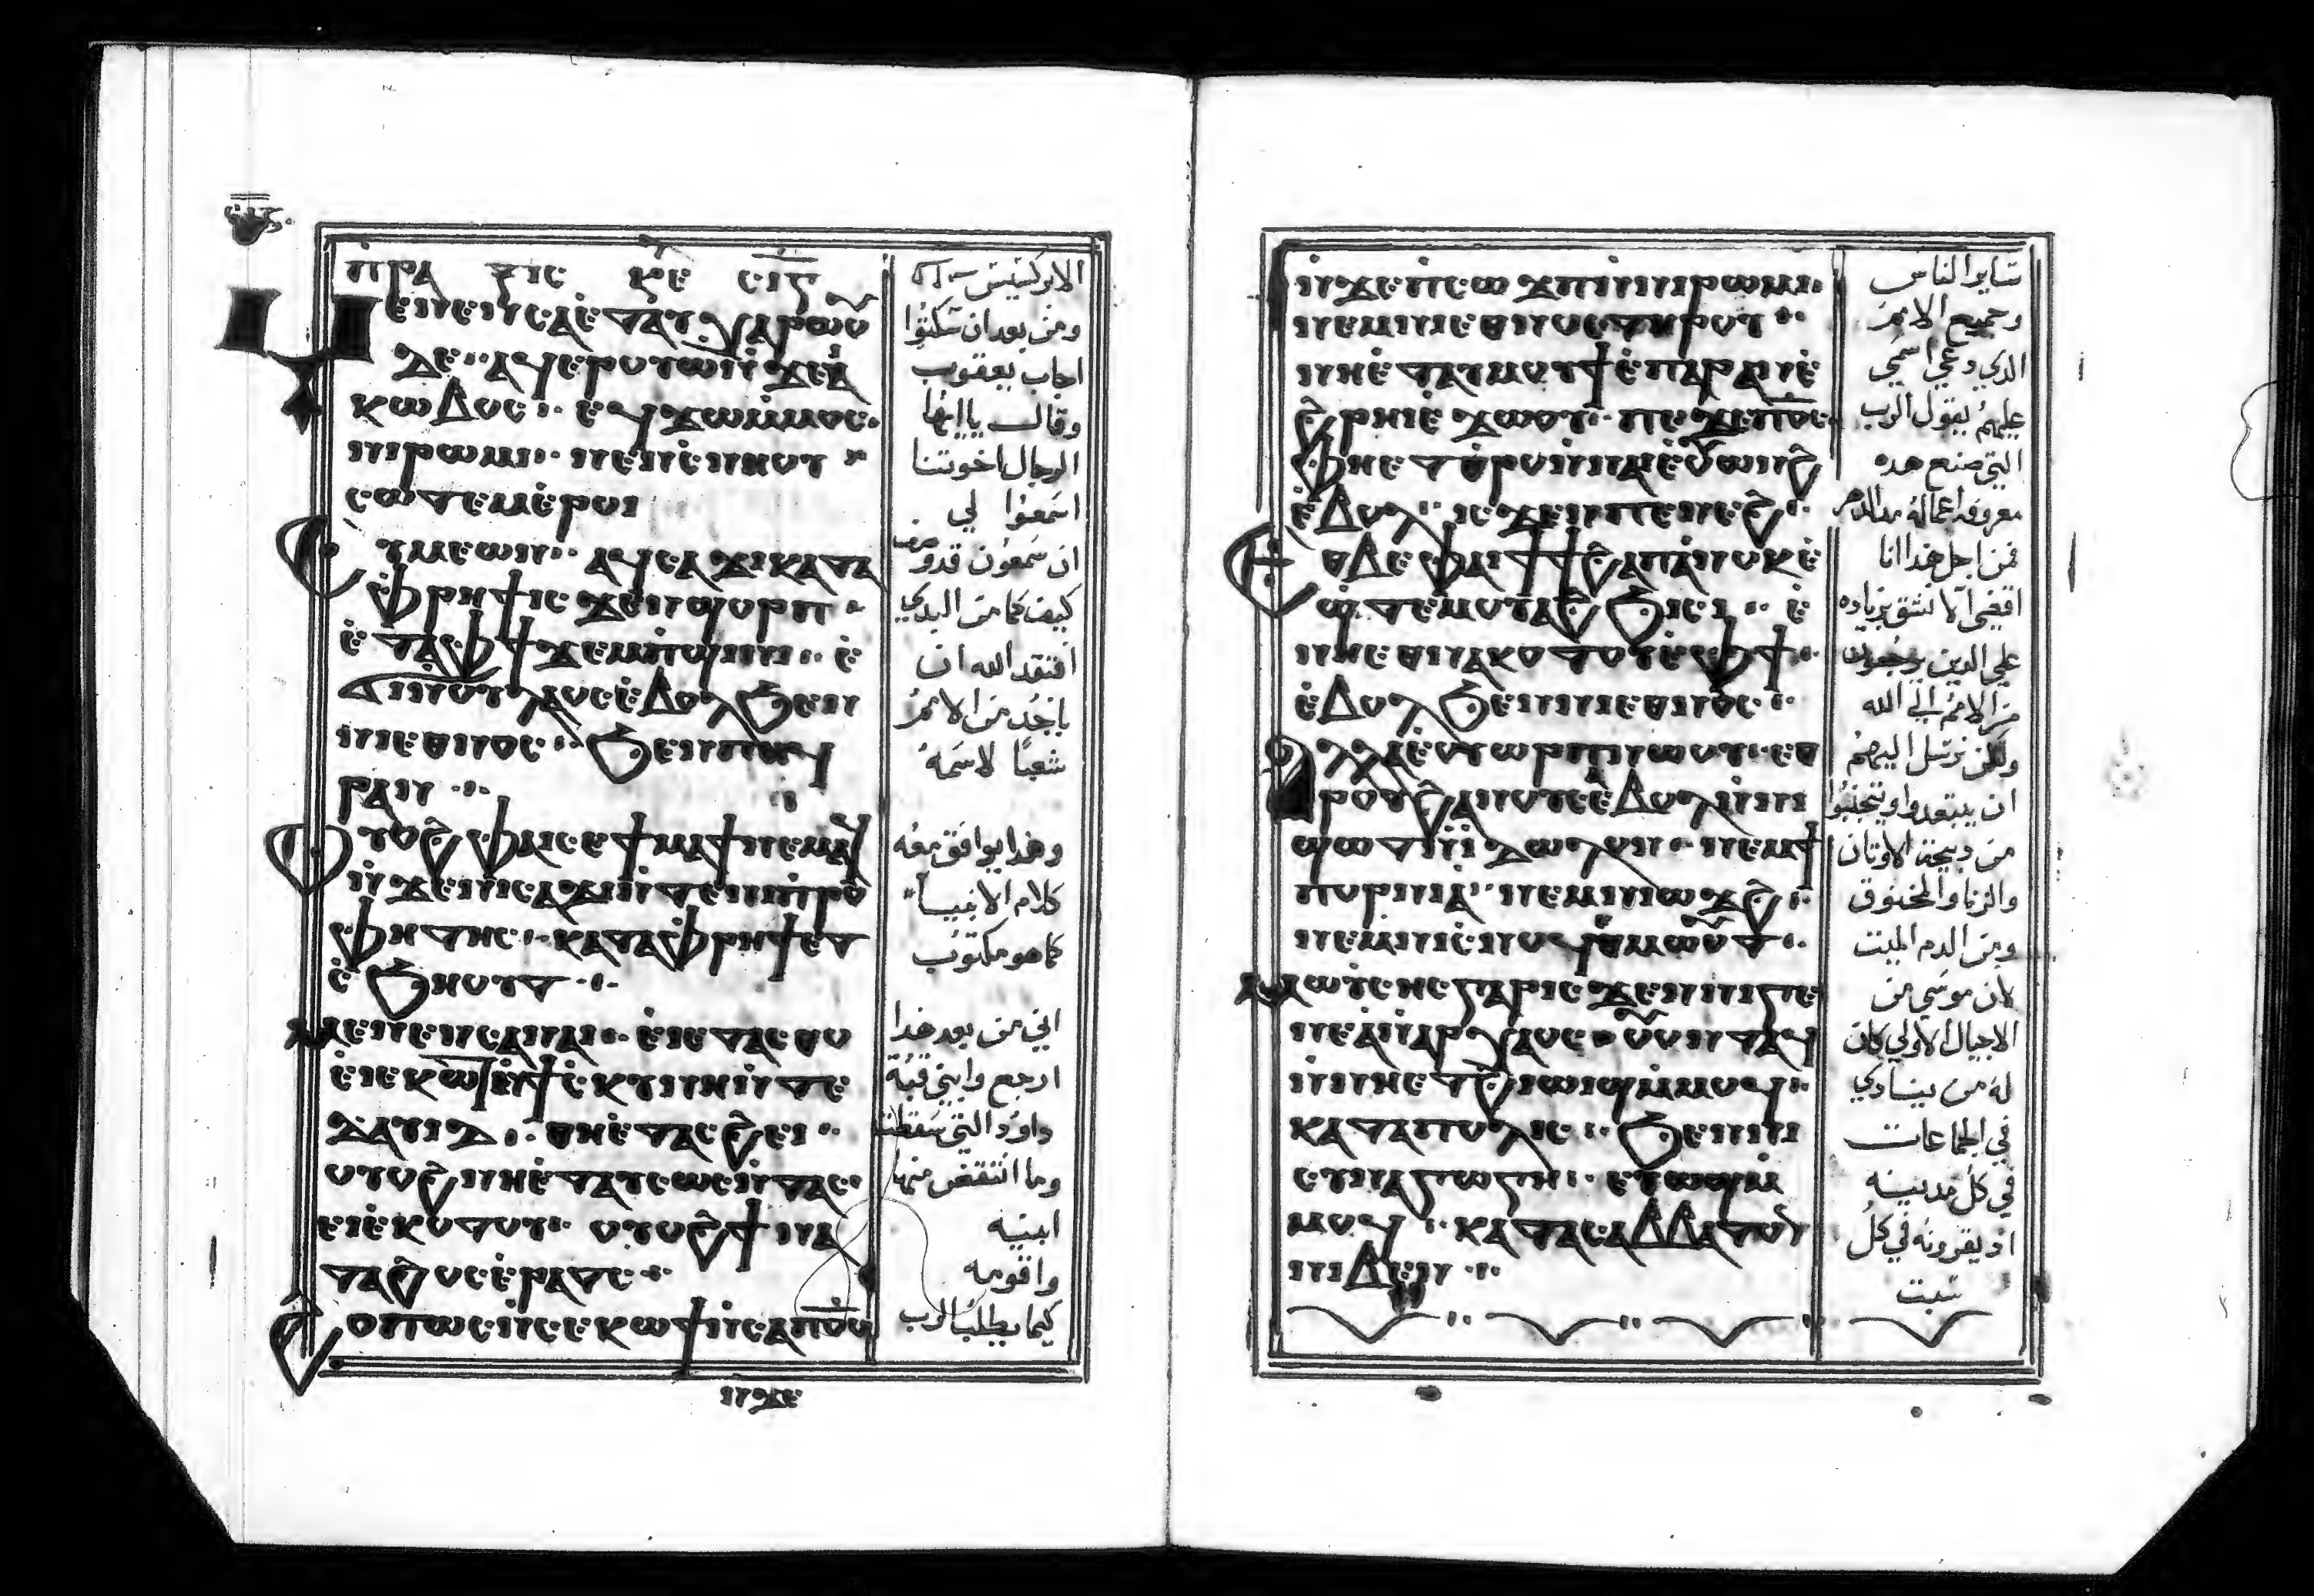 ⲡⲣⲁ ⲝⲓⲥ ⲕⲉ
ⲉⲛⲉⲛⲥⲁ ⲉⲧⲁⲩⲭⲁⲣⲱⲟⲩ
ⲇⲉ ⲁϥⲉⲣⲟⲩⲱ ⲛϫⲉⲓⲁ
ⲕⲱⲃⲟⲥ ⲉϥϫⲱⲙⲙⲟⲥ
ⲛⲓⲣⲱⲙⲓ ⲛⲉⲛⲥⲛⲏⲟⲩ
ⲥⲱⲧⲉⲙⲉⲣⲟⲓ
ⲥⲩⲙⲉⲱⲛ ⲁϥⲥⲁϫⲓ ⲕⲁⲧⲁ
ⲫⲣⲏϯ ⲓⲥϫⲉⲛϣⲟⲣⲡ
ⲉⲧⲁⲫϯ ϫⲉⲙⲡϣⲓⲛⲓ ⲉ
ϭⲓⲛⲟⲩⲗⲁⲟⲥ ⲉⲃⲟⲗϧⲉⲛ
ⲛⲓⲉⲑⲛⲟⲥ ϧⲉⲛⲡⲉϥ
ⲣⲁⲛ
ⲟⲩⲟϩ ⲫⲁⲓ ⲥⲉϯⲙⲁϯ ⲛⲉⲙⲁϥ
ⲛϫⲉⲛⲓⲥⲁϫⲓ ⲛⲧⲉⲛⲓⲡⲣⲟ
ⲫⲏⲧⲏⲥ ⲕⲁⲧⲁⲫⲣⲏϯ ⲉⲧ
ⲥϧⲏⲟⲩⲧ
ⲙⲉⲛⲉⲛⲥⲁⲛⲁⲓ ⲉⲓⲉⲧⲁⲥⲑⲟ
ⲉⲓⲉⲕⲱⲧ ⲛϯⲥⲕⲩⲛⲏ ⲛⲧⲉ
ⲇⲁⲩⲓⲇ ⲑⲏⲉⲧⲁⲥϩⲉⲓ
ⲟⲩⲟϩ ⲛⲏⲉⲧⲁⲩⲥⲱⲉ ⲛⲧⲁⲥ
ⲉⲓⲉⲕⲟⲧⲟⲩ ⲟⲩⲟϩ ϯⲛⲁ
ⲧⲁϩⲟⲥ ⲉⲣⲁⲧⲥ
ϩⲟⲡⲱⲥ ⲛⲥⲉⲕⲱϯ ⲛⲥⲁⲡϭⲟⲓⲥ
ⲛϫⲉ
الابركسيس
ومن بعد ان سكتوا
اجاب يعقوب
وقال يا ايها
الرجال اخوتنا
اسمعوا لي
ان سمعون قد وصف
كيف كما من البدي
افتقد الله ان
ياخد من الامم
شعبا لاسمه
وهذا يوافق معه
كلام الانبيا
كما هو مكتوب
اني من بعد هذا
ارجع وابني قبة
داود التي سقطت
وما انتقض منها
ابنيه
واقومه
كيما يطلب الرب
ⲛϫⲉⲡⲥⲱϫⲡ ⲛⲛⲓⲣⲱⲙⲓ
ⲛⲉⲙⲛⲓⲉⲑⲛⲟⲥ ⲧⲏⲣⲟⲩ
ⲛⲏⲉⲧⲁⲩⲙⲟⲩϯ ⲉⲡⲁⲣⲁⲛ ⲉ
ϩⲣⲏⲓ ⲉϫⲱⲟⲩ ⲡⲉϫⲉⲡϭⲟⲓⲥ
ⲫⲏⲉⲧⲑⲣⲟⲛⲛⲁⲓ ⲟⲩⲱⲛϩ
ⲉⲃⲟⲗ ⲓⲥϫⲉⲛⲡⲉⲛⲉϩ
ⲉⲑⲃⲉⲫⲁⲓ ϯϯϩⲁⲡ ⲁⲛⲟⲕ ⲉ
ϣⲧⲉⲙⲟⲩⲁϩϧⲓⲥⲓ ⲉ
ⲛⲏⲉⲑⲛⲁⲕⲟⲧⲟⲩ ⲉⲫϯ
ⲉⲃⲟⲗϧⲉⲛⲛⲓⲉⲑⲛⲟⲥ
ⲁⲗⲗⲁ ⲉⲟⲩⲱⲣⲡ ⲛⲱⲟⲩ ⲉⲑ
ⲣⲟⲩϩⲉⲛⲟⲩ ⲉⲃⲟⲗ ⲛⲛⲓ
ϣⲱⲧ ⲛⲓⲇⲱⲗⲟⲛ ⲛⲉⲙϯ
ⲡⲟⲣⲛⲓⲁ ⲛⲉⲙⲛⲓⲱϫϩ
ⲛⲉⲙⲛⲓⲥⲛⲟϥ ⲉⲑⲙⲱⲟⲩⲧ
ⲙⲱⲩⲥⲏⲥ ⲅⲁⲣ ⲓⲥϫⲉⲛⲛⲓⲅⲉ
ⲛⲉⲁ ⲛⲁⲣⲭⲁⲓⲟⲥ ⲟⲩⲟⲛⲧⲁϥ
ⲛⲛⲏⲉⲧϩⲓⲱⲓϣ ⲙⲙⲟϥ
ⲕⲁⲧⲁⲡⲟⲗⲓⲥ ϧⲉⲛⲛⲓ
ⲥⲩⲛⲁⲅⲱⲅⲏ ⲉⲩⲱϣ ⲙ
ⲙⲟϥ ⲕⲁⲧⲁⲥⲁⲃⲃⲁⲧⲟⲛ
ⲛⲓⲃⲉⲛ
سايرا الناس
وجميع الامم
الدي دعي اسمي
عليهم يقول الرب
التي صنع هده
معروفه اعماله مند الدهر
فمن اجل هذا انا
اقضي الا نشق بزياده
علي الدين يرجعون
من الامم الي الله
ولكن نرسل اليهم
ان يبتعدوا ويتجنبوا
من دبيحة الاوتان
والزنا والمخنوق
ومن الدم الميت
لان موسي من
الاجيال الاولي كان
له من ينادي
في الجماعات
في كل مدينه
اد يقرونه في كل
سبت